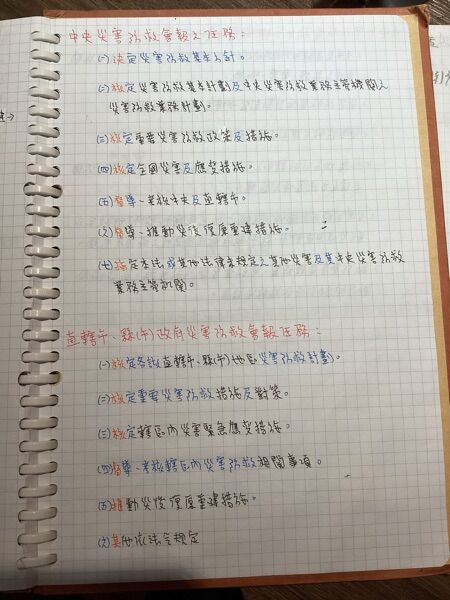 中央災害防救會報之任務：
(一)決定災害防救基本方針。
(二)核定災害防救基本計劃及中央災害防救業務主管機關之
災害防救業務計劃。
(三)核定重要災害防救政策及措施。
(四)核定全國災害及應變措施。
(五)督導、考核中央及直轄市。
(六)督導、推動災後復原重建措施。
(七)指定本法或其他法律未規定之其他災害及其中央災害防救
業務主管機關。
直轄市、縣(市)政府災害防救會報任務：
(一)核定各該直轄市、縣(市)地區災害防救計劃。
(二)核定重要災害防救措施及對策。
(三)核定轄區內災害緊急應變措施。
(四)督導、考核轄區內災害防救相關事項。
(五)推動災後復原重建措施。
(六)其他依法令規定